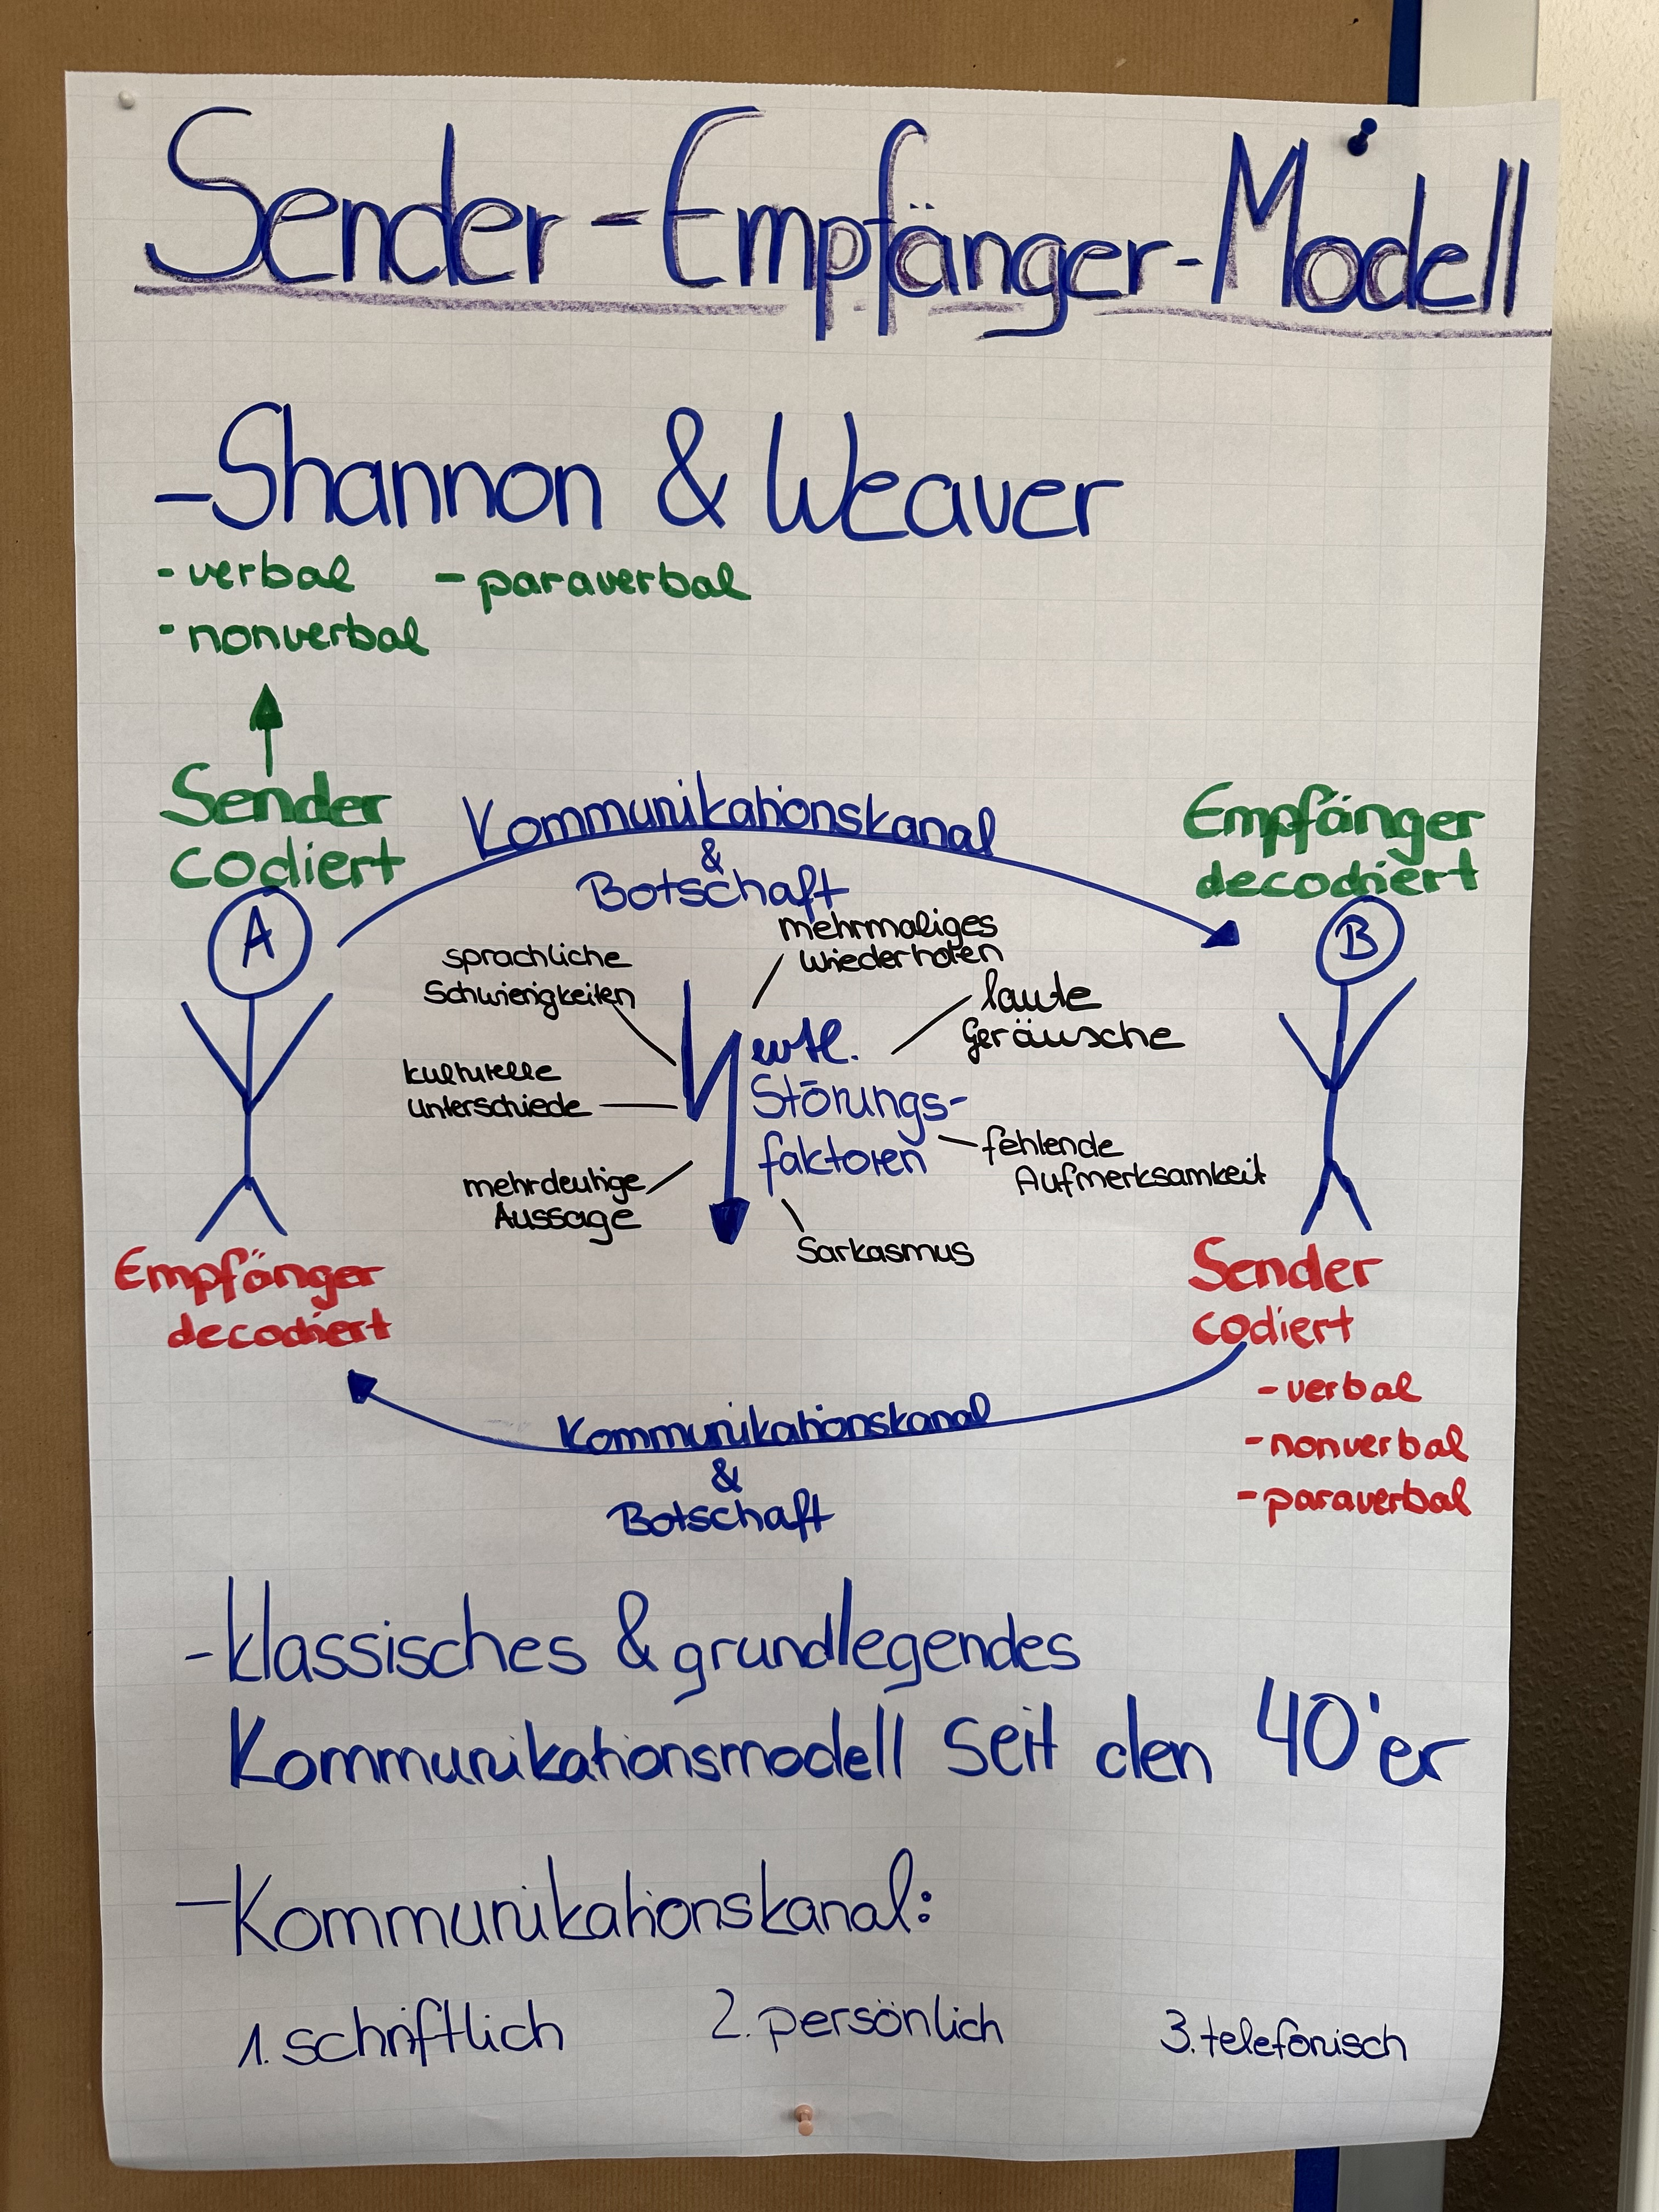 Sender-Empfänger-Modell
- Shannon & Weaver
- verbal - paraverbal
- nonverbal
Sender
codiert
A
Kommunikationskanal
&
Botschaft
Empfänger
decodiert
B
sprachliche
Schwierigkeiten
kulturelle
Unterschiede
mehrdeutige
Aussage
mehrmaliges
Wiederholen
laute
Geräusche
evtl.
Störungs-
faktoren
fehlende
Aufmerksamkeit
Sarkasmus
Empfänger
decodiert
Sender
codiert
- verbal
- nonverbal
- paraverbal
Kommunikationskanal
&
Botschaft
- klassisches & grundlegendes
Kommunikationsmodell seit den 40'er
- Kommunikationskanal:
1. schriftlich 2. persönlich 3. telefonisch